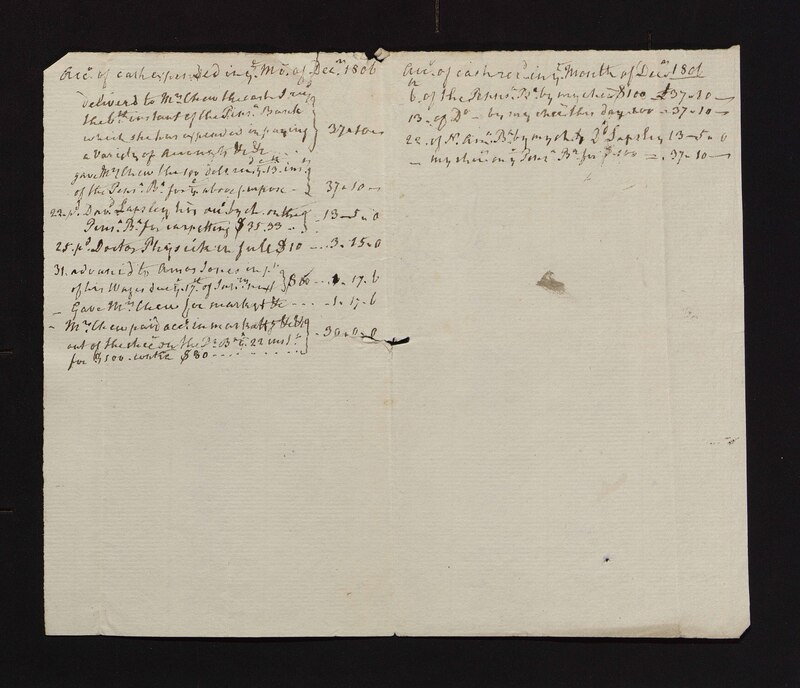 Acc.t of cash expended in ye. Mo. of Decm. 1806
delivered to Mrs. Chew the cash I recd
the 6th. instant of the Pens.a Bank
which she has expended in paying
a variety of Accounts &c &c
37-10-
gave Mrs. Chew the 100 dols recd ye. 13. ins.t
of the Pens.a Bk. for ye. above purpose -
37-10-
22. pd. Davd. Lapsley his acc. by ch. on the
Pens.a Bk. for carpetting $ 35.33
13-5-0
25. pd. Doctor Physick in full $10 - 3-15-0
31. advanced to Amos Jones in pt.
of his Wages due ye. 17th. of
1-17-6
- Gave Mrs. Chew for market &c - 1-17-6
- Mrs. Chew paid acc.ts in market &c
out of the chec. on the Ps. Bk. ye. 22 inst.
for $100 $80
30-0-0
Acc.t of cash recd. in ye. Month of Decm. 1806
6th. of the Penns.a Bk. by my check $100 £37-10-
13. of Do. - by my check this day 100 - 37-10-
22. of N. Am. Bk. by my ch. to Dd. Lapsley 13-5-0
- my check on ye. Pens.a Bk. for $100 - 37-10-